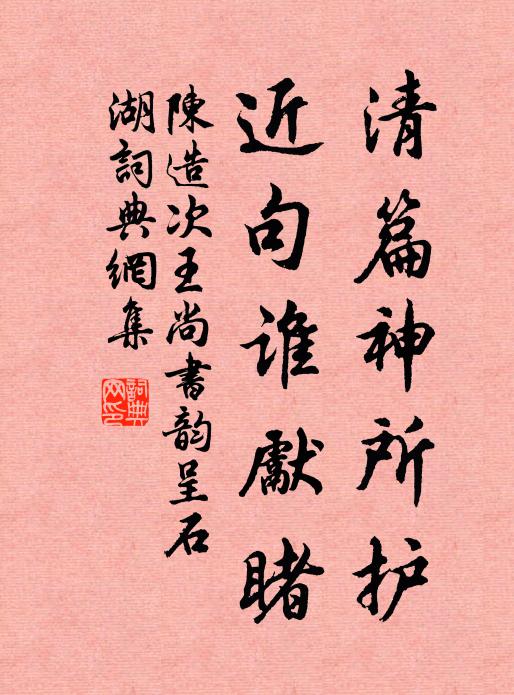 清篇神所护
近句谁獻睹
陳造次王尚書韵呈石
湖詞典網集
詞典网印